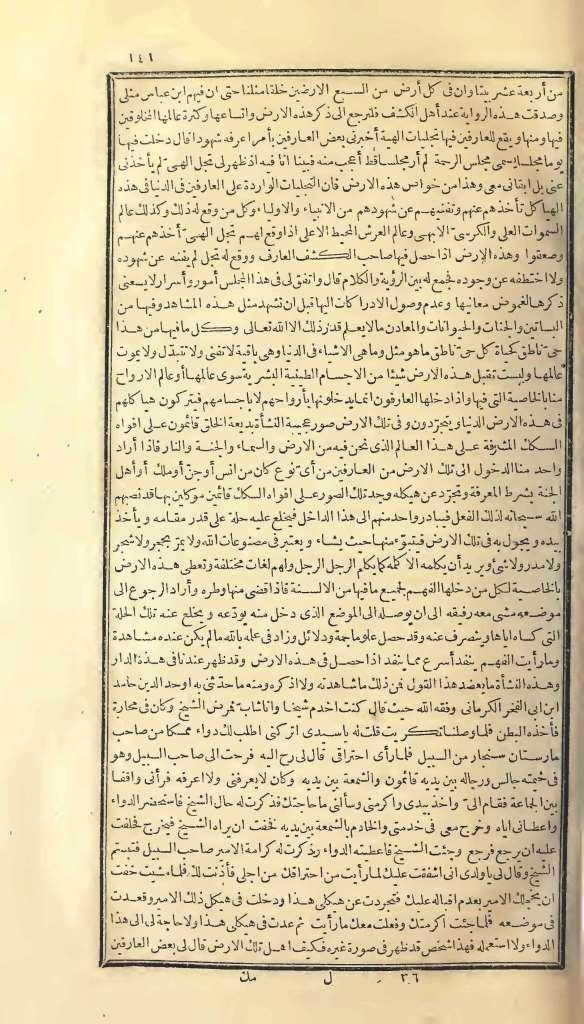 ١٤١
من أربعة عشر بيتا وان فى كل أرض من السبع الارضين خلقا مثلنا حتى ان فيهم ابن عباس مثلى
وصدقت هذه الرواية عند أهل الكشف فلنرجع الى ذكر هذه الارض واتساعها وكثرة عالمها المخلوقين
فيها ومنها ويقع للعارفين فيها تجليات الهية أخبرنى بعض العارفين بأمر أعرفه شهودا قال دخلت فيها
يوما مجلسا يسمى مجلس الرحمة لم أر مجلسا قط أعجب منه فبينا انا فيه اذ ظهر لى تجل الهى لم يأخذنى
عنى بل ابقانى معى وهذا من خواص هذه الارض فان التجليات الواردة على العارفين فى الدنيا فى هذه
الهياكل تأخذهم عنهم وتفنيهم عن شهودهم من الانبياء والاولياء وكل من وقع له ذلك وكذلك عالم
السموات العلى والكرسى الابهى وعالم العرش المحيط الاعلى اذا وقع لهم تجل الهى أخذهم عنهم
وصعقوا وهذه الارض اذا حصل فيها صاحب الكشف العارف ووقع له تجل لم يفنه عن شهوده
ولا اختطفه عن وجوده وجمع له بين الرؤية والكلام قال واتفق لى فى هذا المجلس أمور وأسرار لا يسعنى
ذكرها لغموض معانيها وعدم وصول الادراكات اليها قبل ان تشهد مثل هذه المشاهد وفيها من
البساتين والجنات والحيوانات والمعادن ما لا يعلم قدر ذلك الا الله تعالى وكل ما فيها من هذا
حى ناطق كحياة كل حى ناطق ما هو مثل وما هى الاشياء فى الدنيا وهى باقية لا تفنى ولا تتبدل ولا يموت
عالمها وليست تقبل هذه الارض شيئا من الاجسام الطينية البشرية سوى عالمها أو عالم الارواح
منا بالخاصية التى فيها واذا دخلها العارفون انما يدخلونها بأرواحهم لا بأجسامهم فيتركون هياكلهم
فى هذه الارض الدنيا ويتجردون وفى تلك الارض صور عجيبة النشأة بديعة الخلق قائمون على افواه
السكك المشرفة على هذا العالم الذى نحن فيه من الارض والسماء والجنة والنار فاذا أراد
واحد منا الدخول الى تلك الارض من العارفين من أى نوع كان من انس أو جن أو ملك أو أهل
الجنة بشرط المعرفة وتجرد عن هيكله وجد تلك الصور على افواه السكك قائمين موكلين بها قد نصبهم
الله سبحانه لذلك الفعل فيبادر واحد منهم الى هذا الداخل فيخلع عليه حلة على قدر مقامه ويأخذ
بيده ويجول به فى تلك الارض فيتبوّء منها حيث يشاء ويعتبر فى مصنوعات الله ولا يمر بحجر ولا شجر
ولا مدر ولا شئ ويريد أن يكلمه الا كلمه كما يكلم الرجل الرجل ولهم لغات مختلفة وتعطى هذه الارض
بالخاصية لكل من دخلها الفهم لجميع ما فيها من الالسنة فاذا قضى منها وطره وأراد الرجوع الى
موضعه مشى معه رفيقه الى ان يوصله الى الموضع الذى دخل منه يودّعه ويخلع عنه تلك الحلة
التى كساه اياها وينصرف عنه وقد حصل علوما جمة ودلائل وزاد فى علمه بالله ما لم يكن عنده مشاهدة
وما رأيت الفهم ينفد أسرع مما ينفد اذا حصل فى هذه الارض وقد ظهر عندنا فى هذه الدار
وهذه النشأة ما يعضد هذا القول فمن ذلك ما شاهدته ولا اذكره ومنه ما حدثنى به اوحد الدين حامد
ابن ابى الفخر الكرمانى وفقه الله حيث قال كنت اخدم شيخا وانا شاب فمرض الشيخ وكان فى محارة
فأخذه البطن فلما وصلنا تكريت قلت له يا سيدى اتركنى اطلب لك دواء ممسكا من صاحب
مارستان سنجار من السبيل فلما رأى احتراقى قال لى رح اليه فرحت الى صاحب السبيل وهو
فى خيمته جالس ورجاله بين يديه قائمون والشمعة بين يديه وكان لا يعرفنى ولا اعرفه فرأنى واقفا
بين الجماعة فقام الى واخذ بيدى واكرمنى وسألنى ما حاجتك فذكرت له حال الشيخ فاستحضر الدواء
واعطانى اياه وخرج معى فى خدمتى والخادم بالشمعة بين يديه فخفت ان يراه الشيخ فيخرج فحلفت
عليه ان يرجع فرجع وجئت الشيخ فاعطيته الدواء وذكرت له كرامة الامير صاحب السبيل فتبسم
الشيخ وقال لى يا ولدى انى اشفقت عليك لما رأيت من احتراقك من اجلى فأذنت لك فلما مشيت خفت
ان يخجلك الامير بعدم اقباله عليك فتجردت عن هيكلى هذا ودخلت فى هيكل ذلك الامير وقعدت
فى موضعه فلما جئت اكرمتك وفعلت معك ما رأيت ثم عدت فى هيكلى هذا ولا حاجة لى الى هذا
الدواء ولا استعمله فهذا شخص قد ظهر فى صورة غيره فكيف اهل تلك الارض قال لى بعض العارفين
٣٦ ل مك